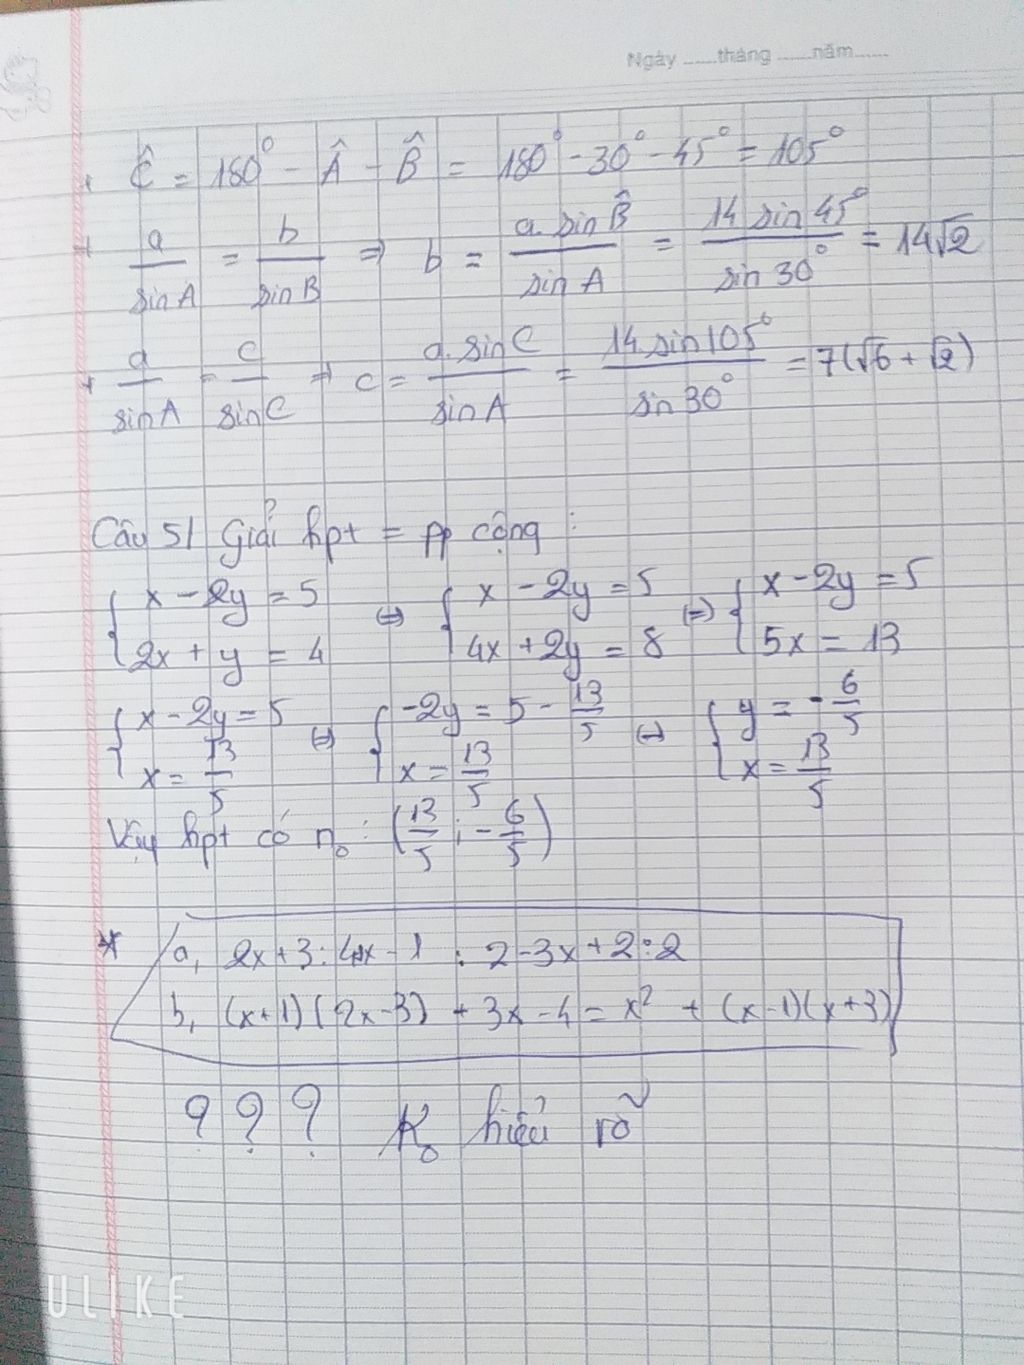 Ngày ......tháng ......năm......
+ Ĉ = 180° - Â - B̂ = 180° - 30° - 45° = 105°
+ a/sin A = b/sin B => b = a.sin B̂/sin A = 14 sin 45°/sin 30° = 14√2
+ a/sin A = c/sin C => c = a.sin C/sin A = 14.sin 105°/sin 30° = 7(√6 + √2)
Câu 5/ Giải hpt = pp cộng :
{ x - 2y = 5 ; 2x + y = 4 <=> { x - 2y = 5 ; 4x + 2y = 8 <=> { x - 2y = 5 ; 5x = 13
{ x - 2y = 5 ; x = 13/5 <=> { -2y = 5 - 13/5 ; x = 13/5 <=> { y = -6/5 ; x = 13/5
Vậy hpt có n₀ : (13/5 ; -6/5)
* a, 2x + 3 : 4x - 1 : 2 - 3x + 2 : 2
b, (x+1)(2x-3) + 3x - 4 = x² + (x-1)(x+3)
? ? ? K₀ hiểu rõ
ULIKE